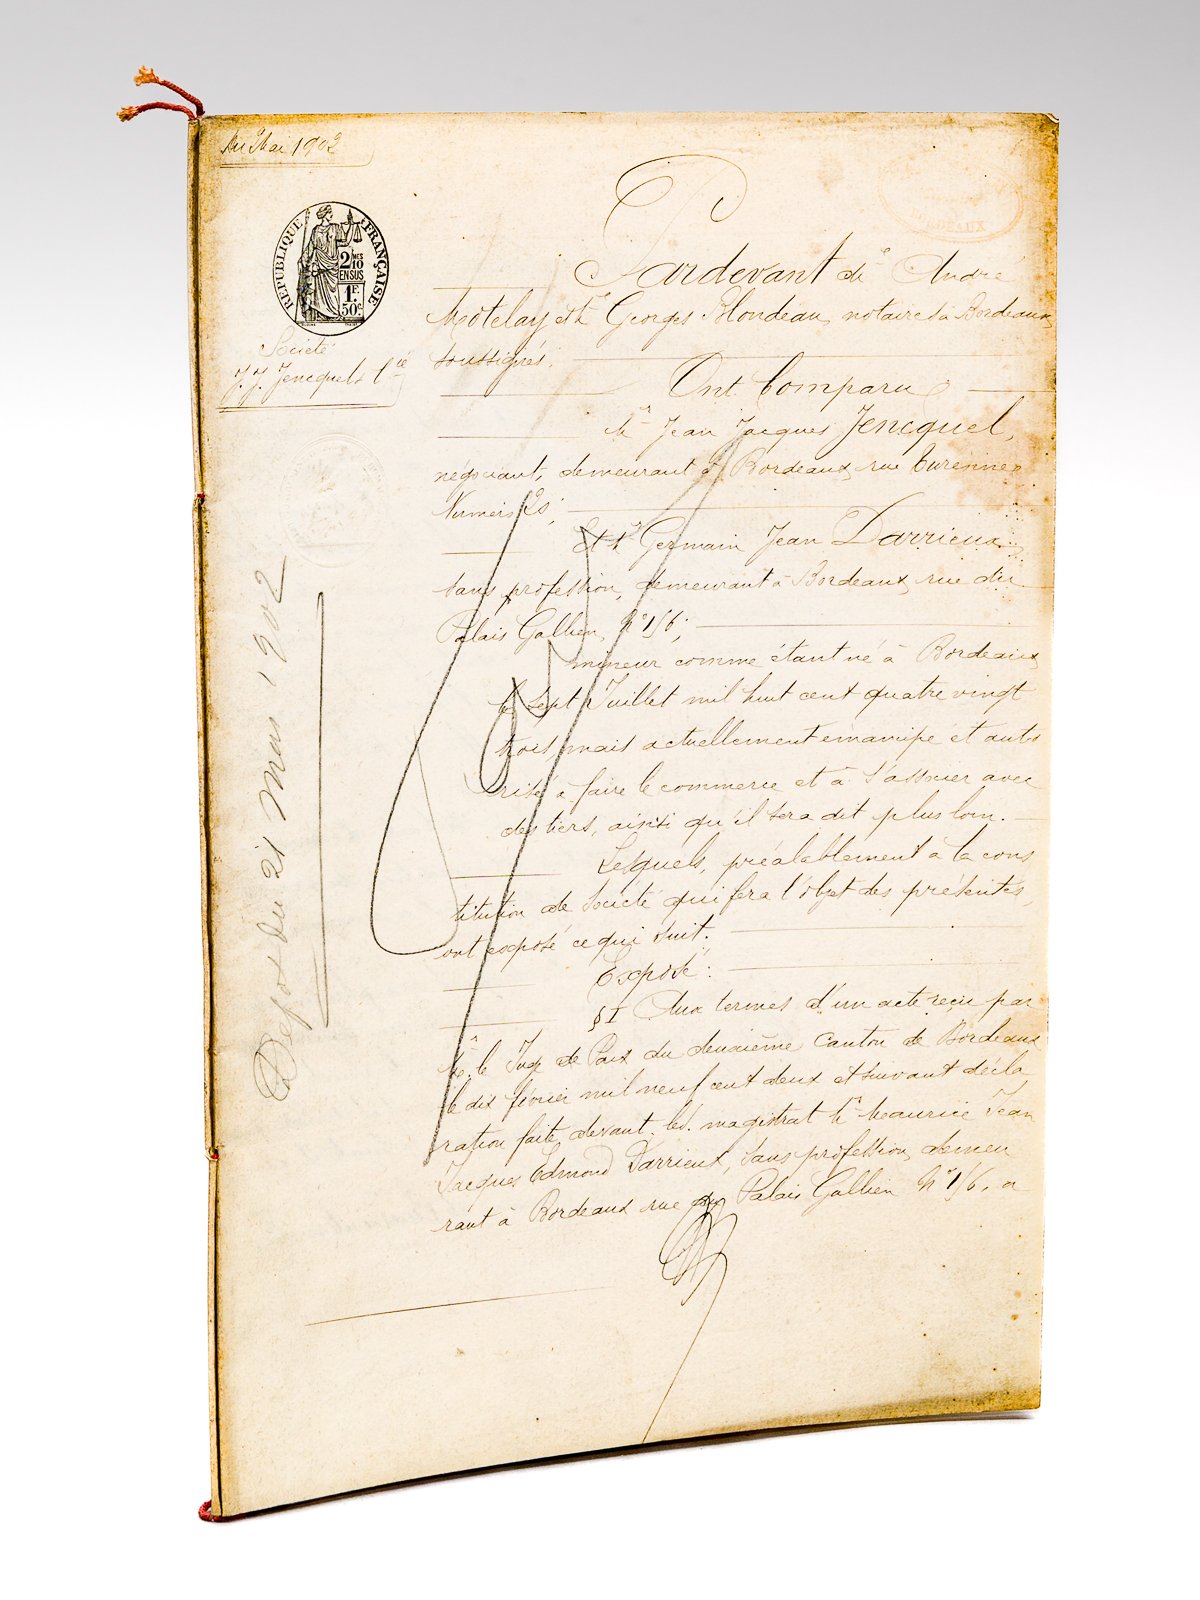 Mai 1902
RÉPUBLIQUE FRANÇAISE
2 MES
10
EN SUS
1 F.
50 C.
Société
J. J. Jencquel & Cie
Dépot du 21 Mars 1902
BORDEAUX
Pardevant Me André
Motelay et Me Georges Blondeau, notaires à Bordeaux
soussignés.
Ont Comparu
Mr Jean Jacques Jencquel,
négociant, demeurant à Bordeaux, rue Turenne
Numéro
Et Mr Germain Jean Darrieux,
sans profession, demeurant à Bordeaux, rue du
Palais Gallien, No 156;
mineur comme étant né à Bordeaux
le sept Juillet mil huit cent quatre vingt
trois, mais actuellement émancipé et auto
risé à faire le commerce et à s'associer avec
des tiers, ainsi qu'il sera dit plus loin.
Lesquels, préalablement à la cons
titution de Société qui fera l'objet des présentes,
ont exposé ce qui suit.
Exposé:
§ I Aux termes d'un acte reçu par
Mr. le Juge de Paix du deuxième Canton de Bordeaux
le dix février mil neuf cent deux et suivant décla
ration faite devant led. magistrat Mr Maurice Jean
Jacques Edmond Darrieux, sans profession, demeu
rant à Bordeaux rue du Palais Gallien No 156, a